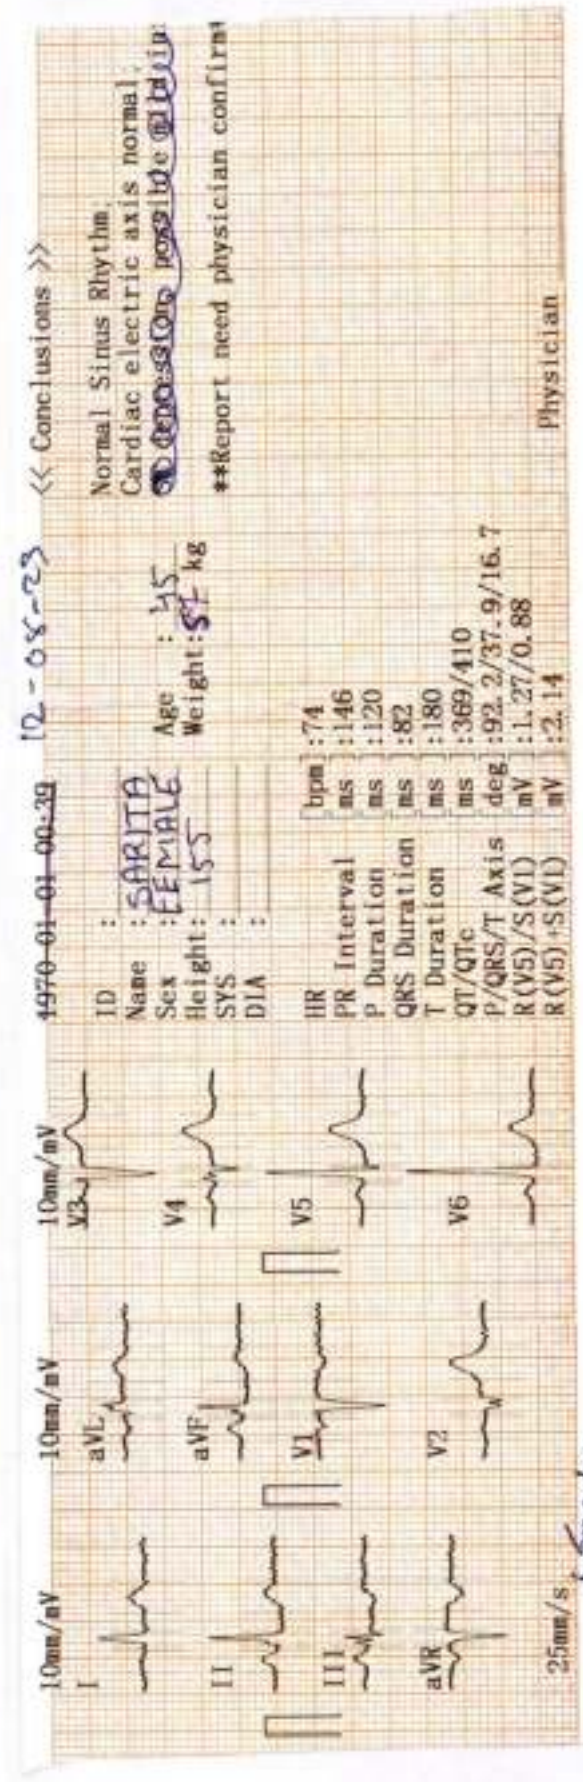 10mm/mV 10mm/mV 10mm/mV
I
II
III
aVR
25mm/s
aVL
aVF
V1
V2
V3
V4
V5
V6
1970-01-01 00:39 12-08-23
ID :
Name : SARITA
Sex : FEMALE Age : 45
Height: 155 Weight: 57 kg
SYS :
DIA :
HR [bpm] :74
PR Interval [ms] :146
P Duration [ms] :120
QRS Duration [ms] :82
T Duration [ms] :180
QT/QTc [ms] :369/410
P/QRS/T Axis [deg] :92.2/37.9/16.7
R(V5)/S(V1) [mV] :1.27/0.88
R(V5)+S(V1) [mV] :2.14
<< Conclusions >>
Normal Sinus Rhythm;
Cardiac electric axis normal;
depression, possible
**Report need physician confirm
Physician